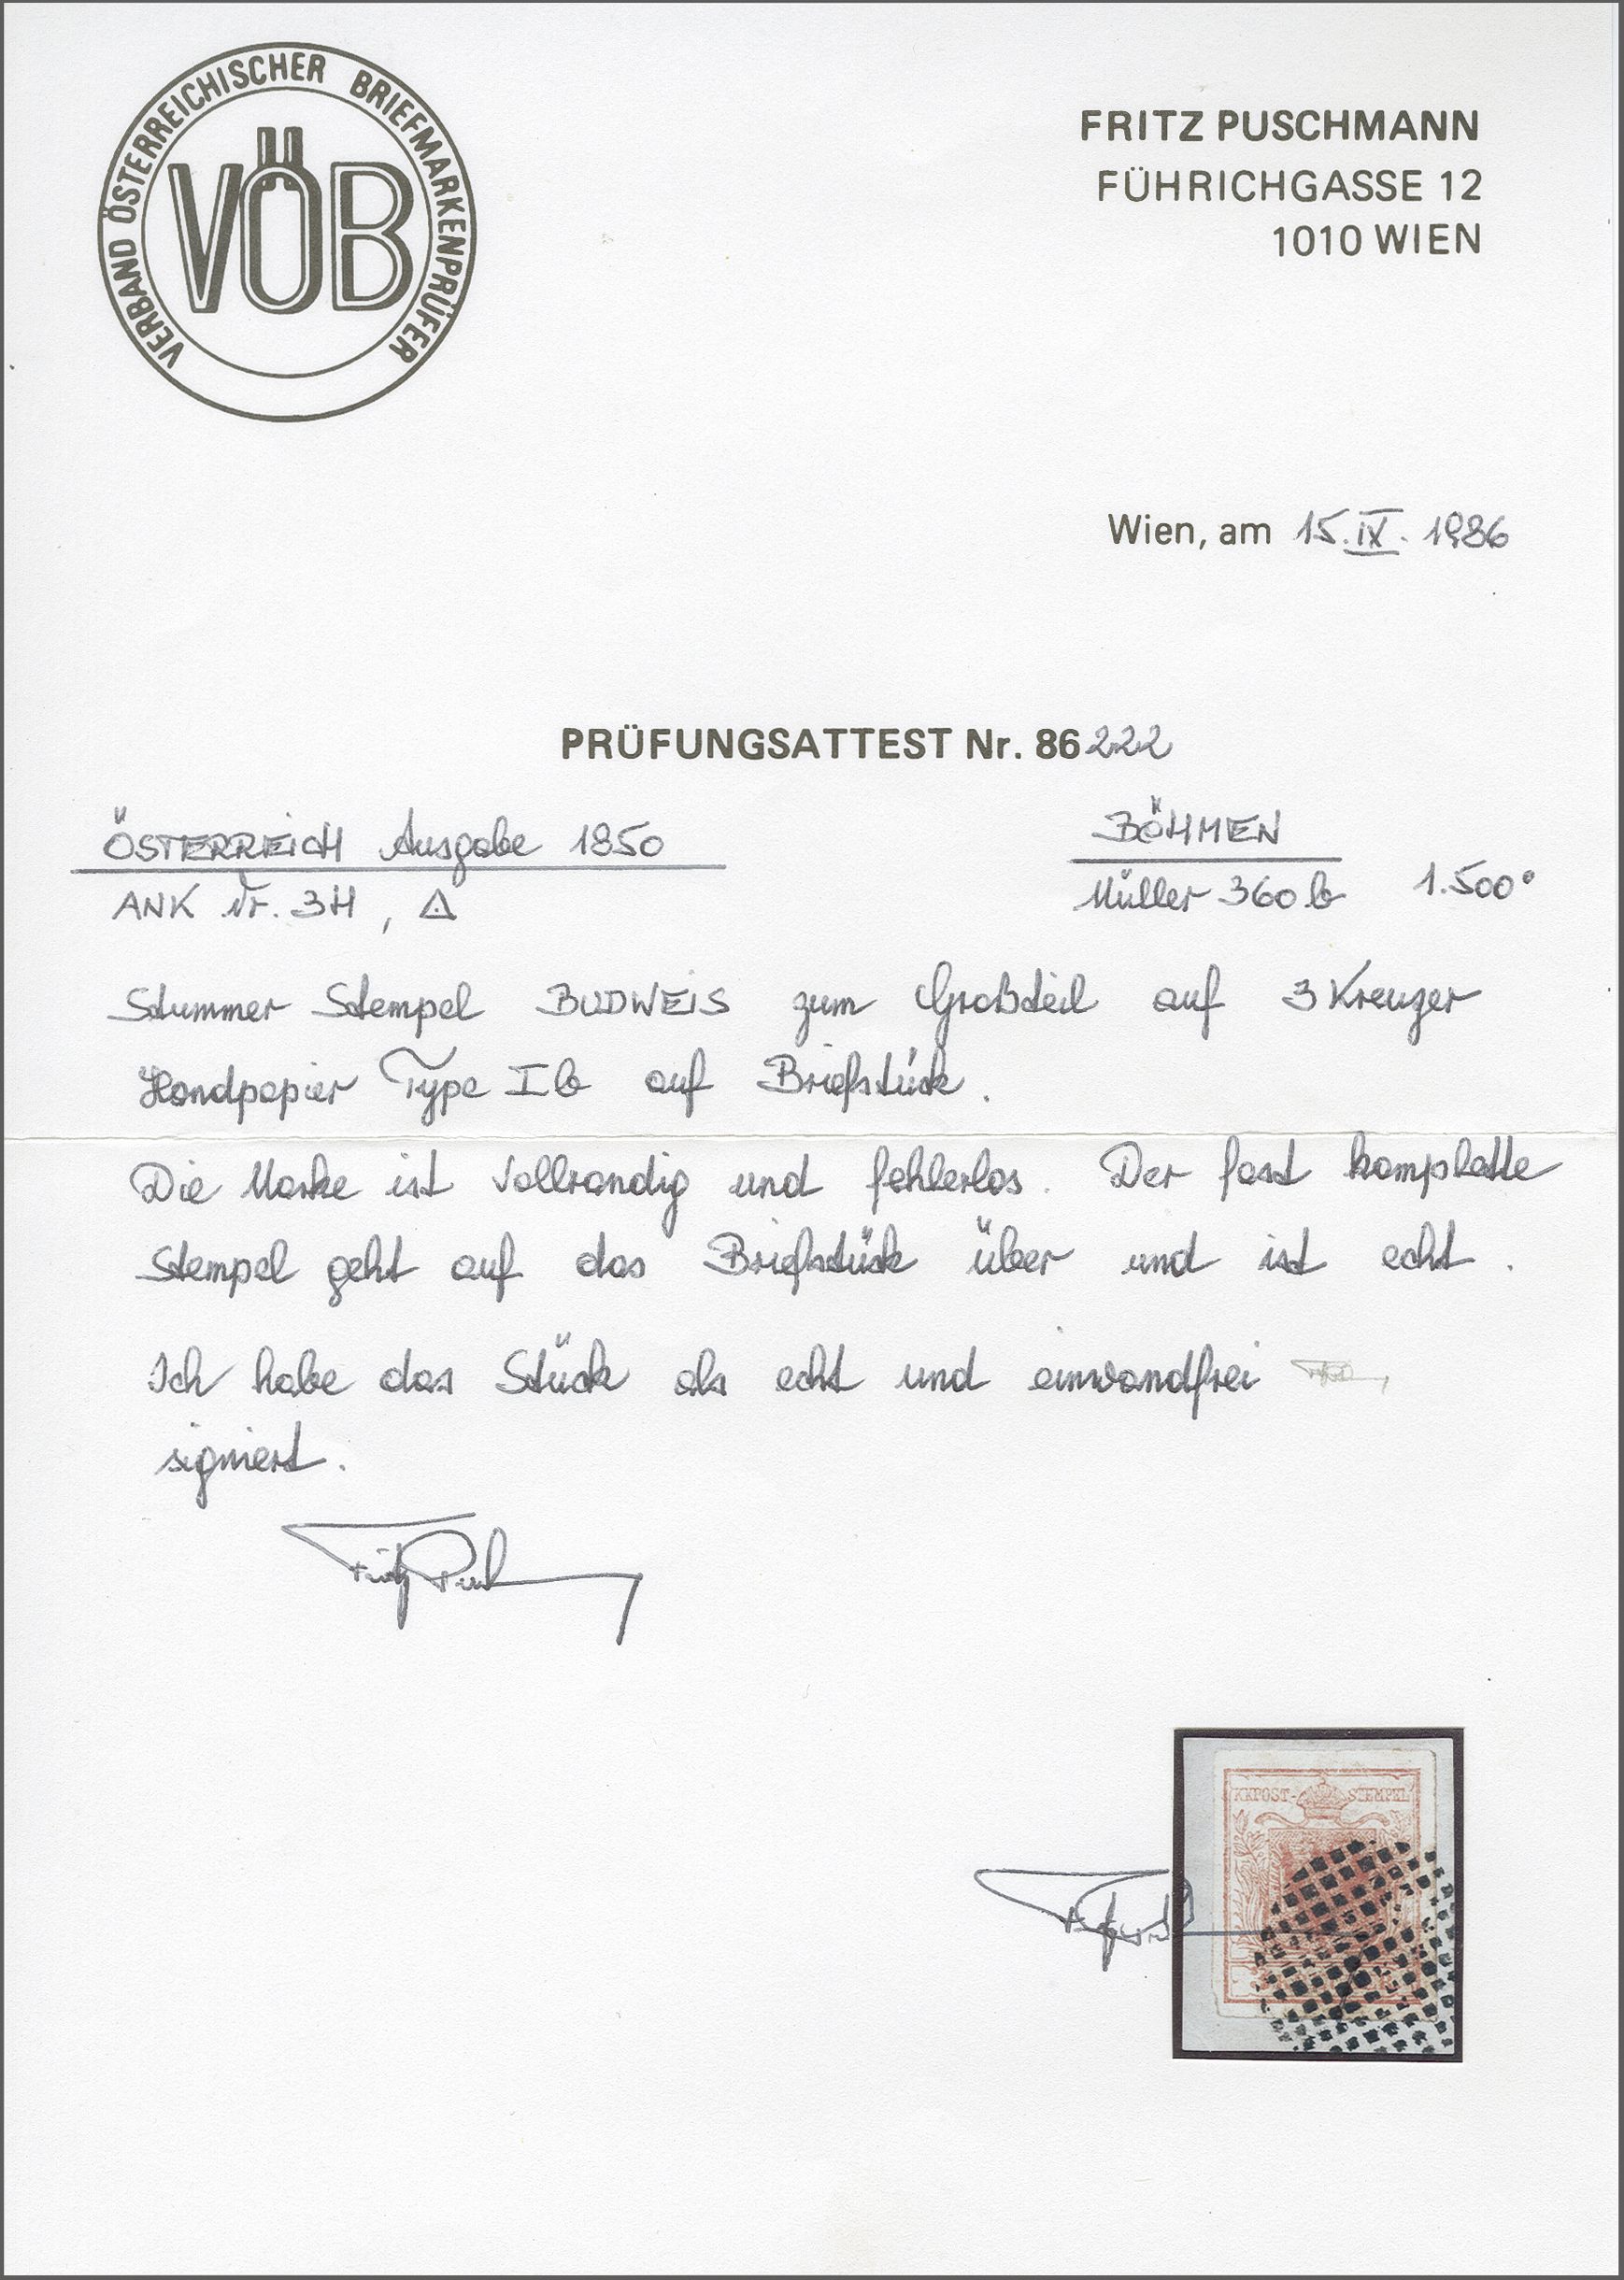 VERBAND ÖSTERREICHISCHER BRIEFMARKENPRÜFER
VÖB
FRITZ PUSCHMANN
FÜHRICHGASSE 12
1010 WIEN
Wien, am 15. IX. 1986
PRÜFUNGSATTEST Nr. 86222
ÖSTERREICH Ausgabe 1850
BÖHMEN
ANK Nr. 3H, △
Müller 360 b 1.500°
Stummer Stempel BUDWEIS zum Großteil auf 3 Kreuzer
Handpapier Type I b auf Briefstück.
Die Marke ist vollrandig und fehlerlos. Der fast komplette
Stempel geht auf das Briefstück über und ist echt.
Ich habe das Stück als echt und einwandfrei
signiert.
KKPOST-STEMPEL